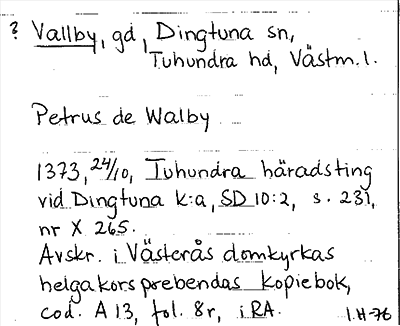 ? Vallby, gd, Dingtuna sn,
Tuhundra hd, Västm. l.
Petrus de Walby
1373, 24/10, Tuhundra häradsting
vid Dingtuna k:a, SD 10:2, s. 231,
nr X 265.
Avskr. i Västerås domkyrkas
helgakorsprebendas kopiebok,
cod. A 13, fol. 8r, i RA.
I.H-76